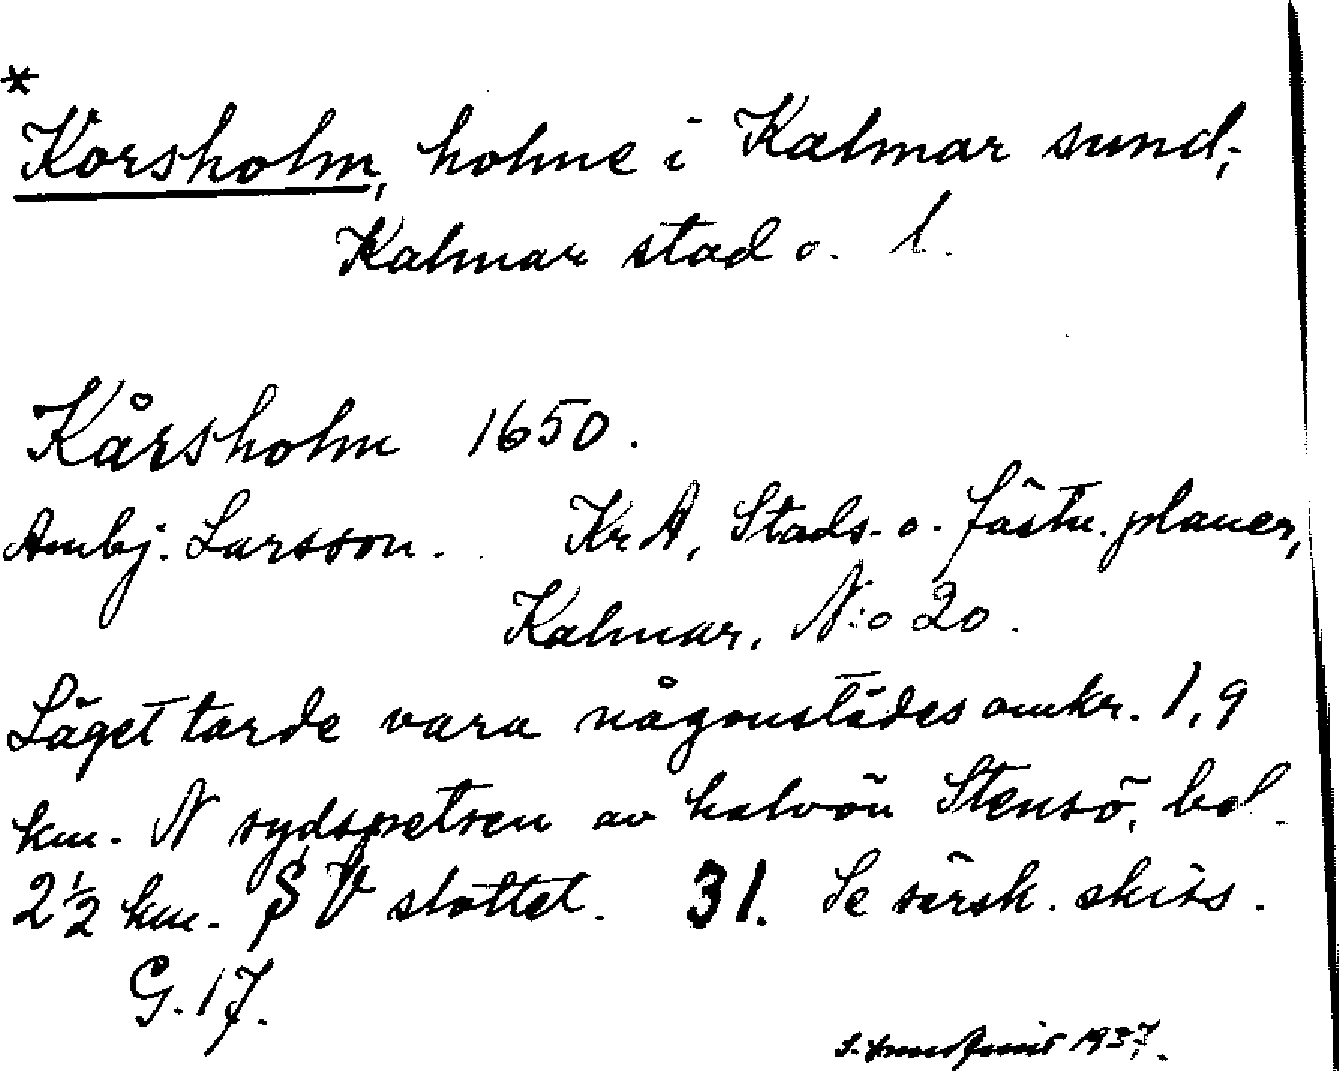 *
Korsholm, holme i Kalmar sund;
Kalmar stad o. l.
Kårsholm 1650.
Ambj. Larsson. KrA, Stads- o. fästn. planer,
Kalmar, N:o 20.
Läget torde vara någonstädes omkr. 1,9
km. N sydspetsen av halvön Stensö, bel.
2½ km. SV slottet. 31. Se särsk. skiss.
G. 17.
1937.